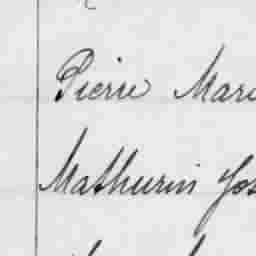 Pierre Mari
Mathurin Jos